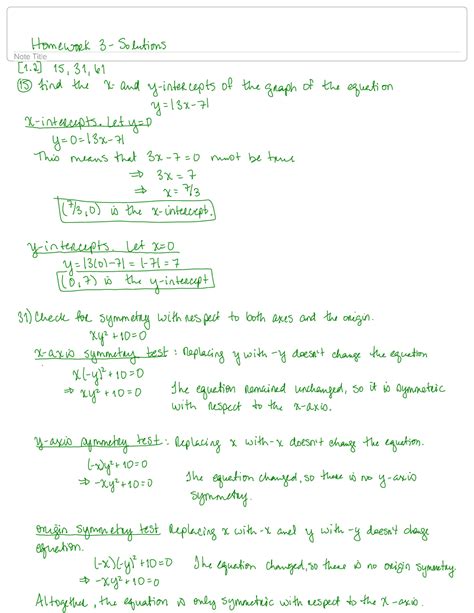 Homework 3 - Solutions
Note Title
[1.2] 15, 31, 61
(15) find the x- and y-intercepts of the graph of the equation
y=|3x-7|
x-intercepts. Let y=0
y=0=|3x-7|
This means that 3x-7=0 must be true
⇒ 3x=7
⇒ x=7/3
(7/3, 0) is the x-intercept.
y-intercepts. Let x=0
y=|3(0)-7|=|-7|=7
(0,7) is the y-intercept
31) Check for symmetry with respect to both axes and the origin.
xy²+10=0
x-axis symmetry test: Replacing y with -y doesn't change the equation
x(-y)²+10=0
⇒ xy²+10=0 The equation remained unchanged, so it is symmetric
with respect to the x-axis.
y-axis symmetry test: Replacing x with -x doesn't change the equation.
(-x)y²+10=0
⇒ -xy²+10=0 The equation changed, so there is no y-axis
symmetry.
origin symmetry test Replacing x with -x and y with -y doesn't change
equation.
(-x)(-y)²+10=0 The equation changed, so there is no origin symmetry
⇒ -xy²+10=0
Altogether, the equation is only symmetric with respect to the x-axis.